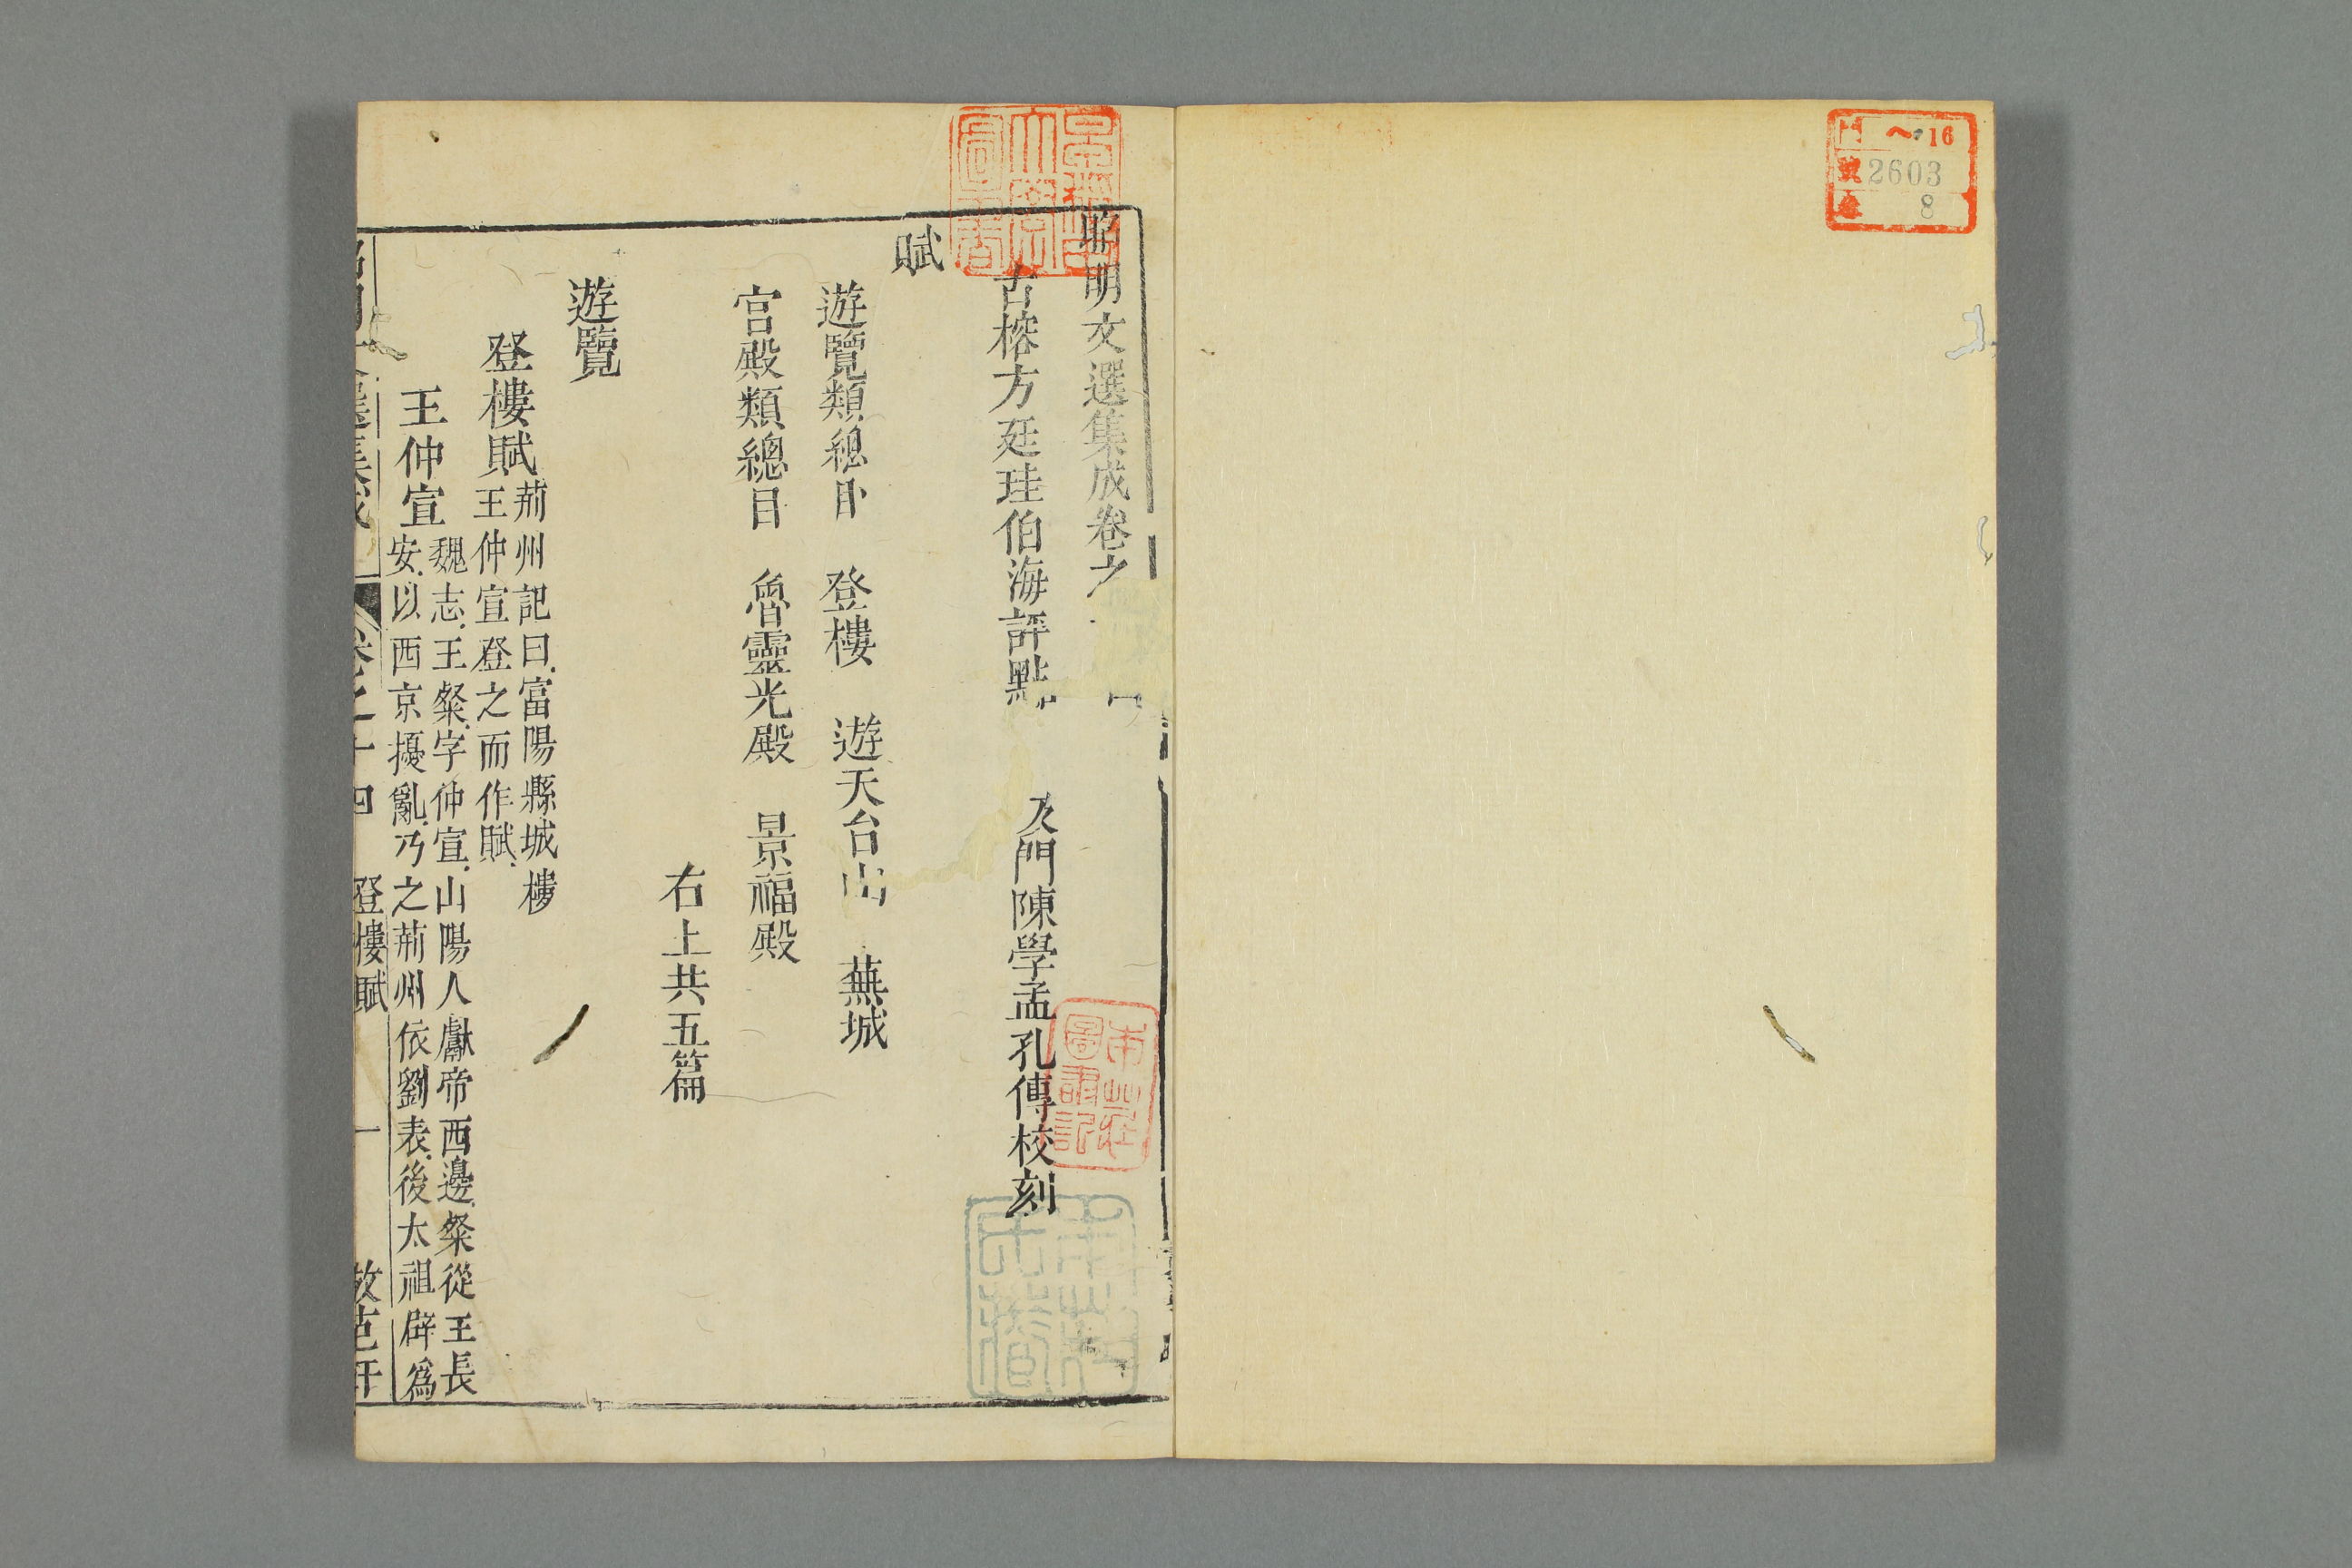 門 ヘ 16
號 2603
卷 8
昭明文選集成卷之
古榕方廷珪伯海評點 及門陳學孟孔傳校刻
賦
遊覽類總目 登樓 遊天台山 蕪城
宮殿類總目 魯靈光殿 景福殿
右上共五篇
遊覽
登樓賦
荊州記曰富陽縣城樓
王仲宣登之而作賦
王仲宣
魏志王粲字仲宣山陽人獻帝西邊粲從王長
安以西京擾亂乃之荊州依劉表後太祖辟爲
卷之十四 登樓賦 一